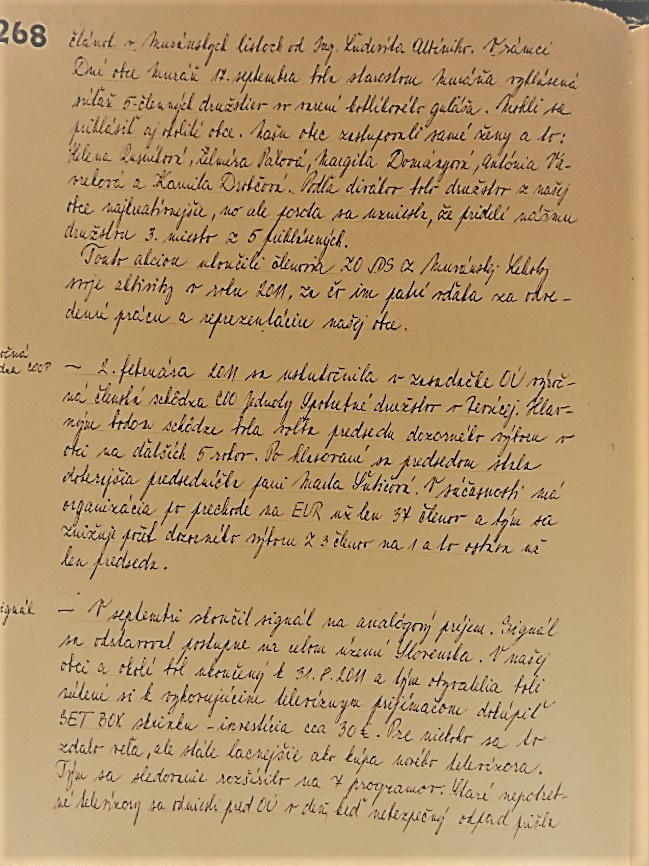 268
článok v Muránskych listoch od Ing. Ľudevíta Altániho. V rámci
Dní obce Muráň 17. septembra bola starostom Muráňa vyhlásená
súťaž 5-členných družstiev vo varení kotlíkového guláša. Mohli sa
prihlásiť aj okolité obce. Našu obec zastupovali samé ženy a to:
Helena Želmíra Paľová, Margita Antónia Vá-
a Kamila Drobčová. Podľa divákov bolo družstvo z našej
obce najkreatívnejšie, no ale porota sa uzniesla, že pridelí nášmu
družstvu 3. miesto z 5 prihlásených.
Touto akciou ukončili členovia ZO JDS z Muránskej Lehoty
svoje aktivity v roku 2011, za čo im patrí vďaka za odve-
denú prácu a reprezentáciu našej obce.
– 2. februára 2011 sa uskutočnila v zasadačke OÚ výroč-
ná členská schôdza Jednoty Spotrebné družstvo v Revúcej. Hlav-
ným bodom schôdze bola voľba predsedu dozorného výboru v
obci na ďalších 5 rokov. Po hlasovaní sa predsedom stala
doterajšia predsedníčka pani Marta V súčasnosti má
organizácia po prechode na EUR už len 37 členov a tým sa
znižuje počet dozorného výboru z 3 členov na 1 a to ostáva už
len predseda.
signál – V septembri skončil signál na analógový príjem. Signál
sa odstavoval postupne na celom území Slovenska. V našej
obci a okolí bol ukončený k 31.8.2011 a tým obyvatelia boli
nútení si k vyhovujúcim televíznym prijímačom dokúpiť
SET BOX skrinku – investícia cca 30 €. Pre niekoho sa to
zdalo veľa, ale stále lacnejšie ako kúpa nového televízora.
Tým sa sledovanie rozšírilo na 7 programov. Staré nepotreb-
né televízory sa odniesli pred OÚ v deň, keď nebezpečný odpad prišla